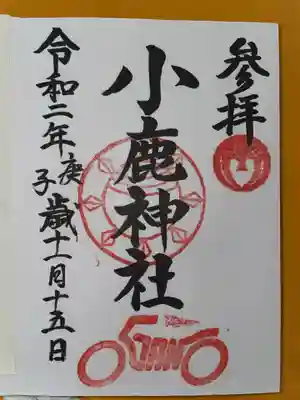 参拝
小鹿神社
令和二年庚子歳十一月十五日
OGANO